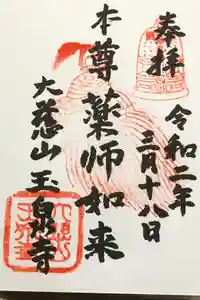 奉拝
令和二年
三月十八日
本尊薬师如来
大慈山玉泉寺